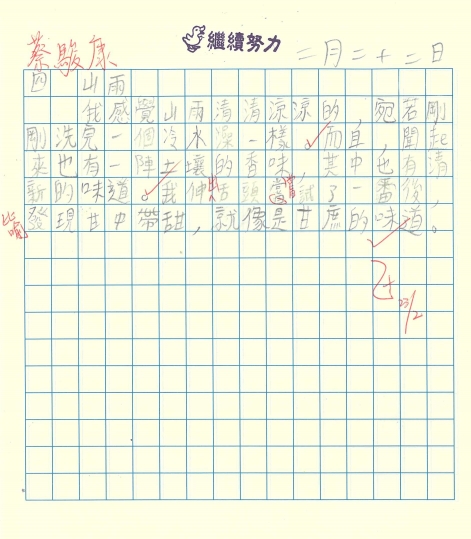 繼續努力
蔡駿康
二月二十二日
四 山雨
我感覺山雨清清涼涼的，宛若剛
剛洗完一個冷水澡一樣。而且，聞起
來也有一陣土壤的香味，其中也有清
新的味道。我伸出舌頭嘗試了一番後，
比喻
發現甘中帶甜，就像是甘庶的味道。
22/2